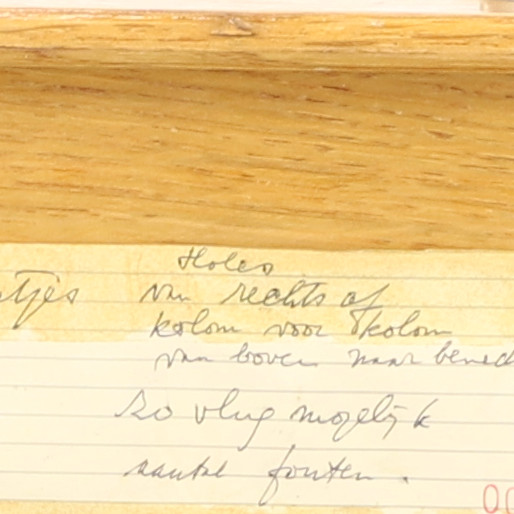 Holes
tjes van rechts af
kolom voor kolom
van boven naar bened
zo vlug mogelijk
aantal fouten.
00